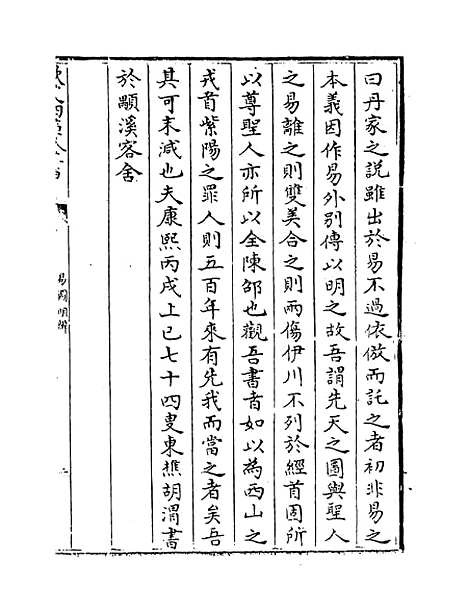 曰丹家之説雖出於易不過依倣而託之者初非易之
本義因作易外别傳以明之故吾謂先天之圖與聖人
之易離之則雙美合之則兩傷伊川不列於經首固所
以尊聖人亦所以全陳邵也觀吾書者如以為西山之
戎首紫陽之罪人則五百年來有先我而當之者矣吾
其可末減也夫康熙丙戌上巳七十四叟東樵胡渭書
於顓溪客舍
易圖明辨